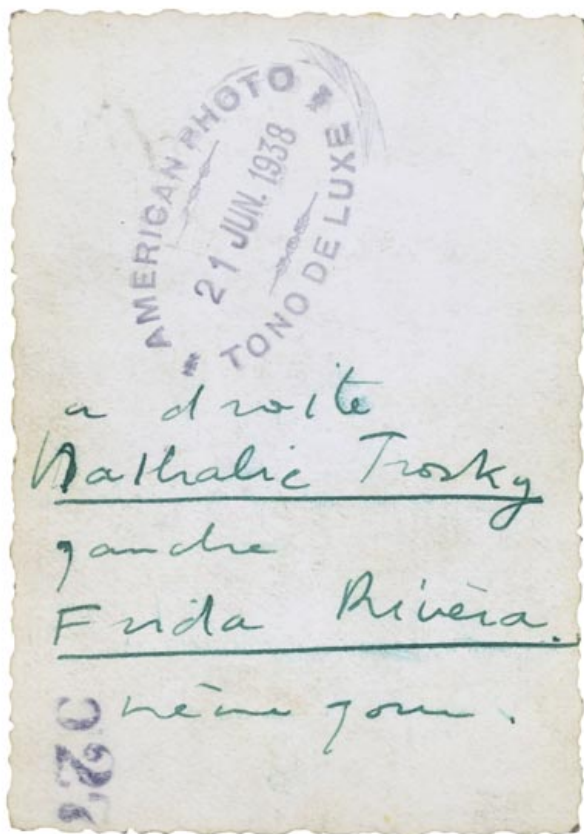 AMERICAN PHOTO
21 JUN. 1938
TONO DE LUXE
a droite
Nathalie Trosky
gauche
Frida Rivèra.
même jour.